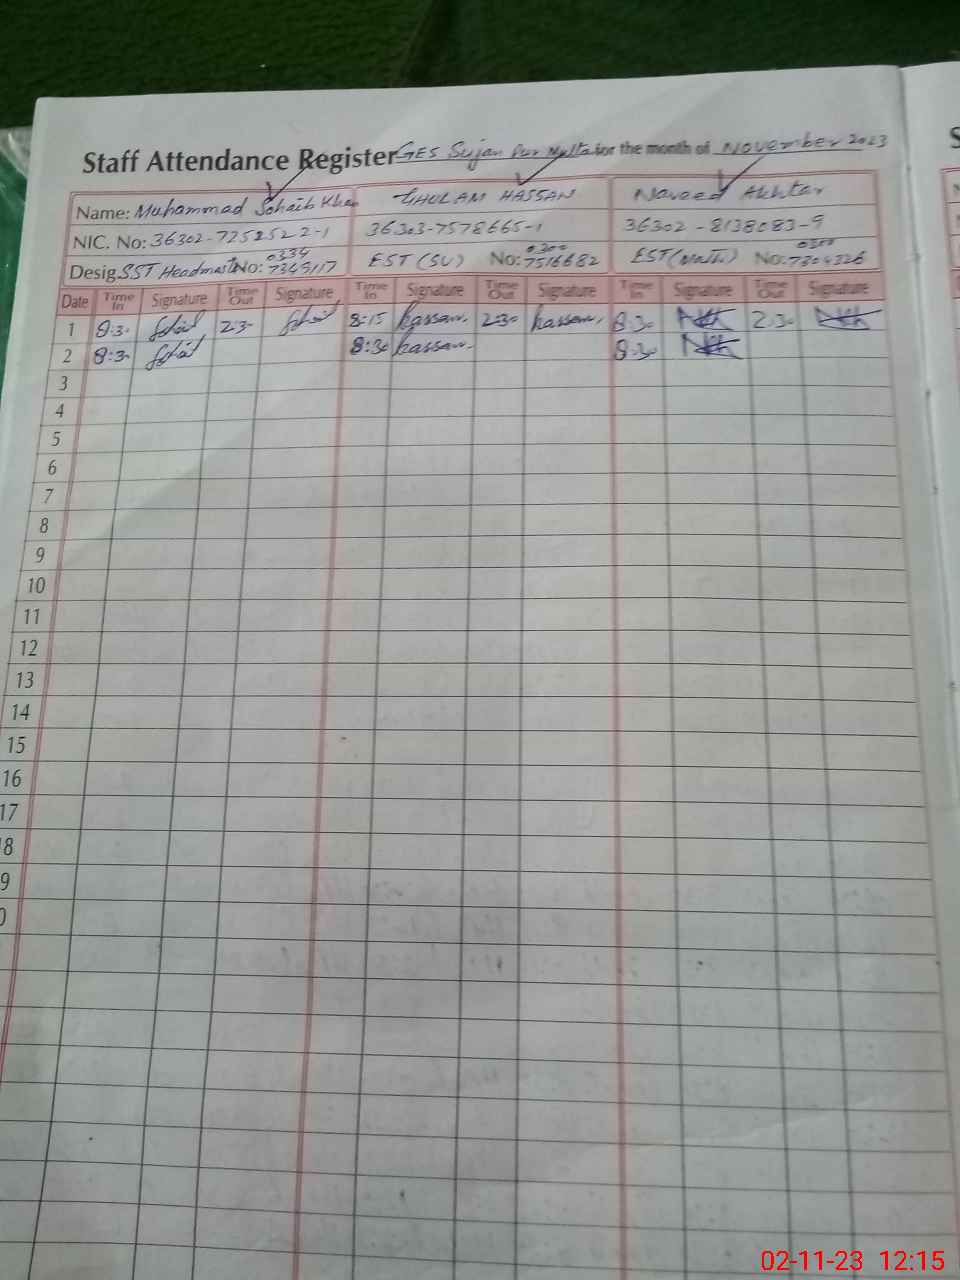 Staff Attendance Register GES Sujan Pur Multa for the month of November 2023
Name: Muhammad Sohaib Khan GHULAM HASSAN Naveed Akhtar
NIC. No: 36302-7252522-1 36303-7578665-1 36302-8138083-9
Desig. SST Headmast No: 0334 7349117 EST (SV) No: 0300 7516682 EST (Math) No: 7304326
Date Time In Signature Time Out Signature Time In Signature Time Out Signature Time In Signature Time Out Signature
1 8:30 2:30 8:15 hassan. 2:30 hassan. 8:30 2:30
2 8:30 8:30 hassan. 8:30
3
4
5
6
7
8
9
10
11
12
13
14
15
16
17
8
9
0
02-11-23 12:15